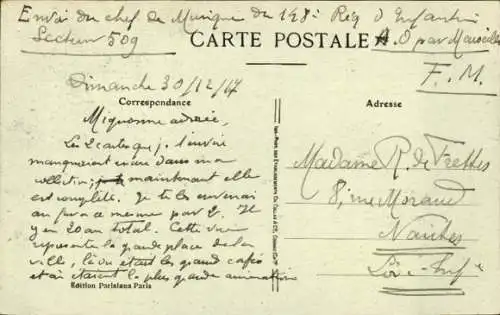 Envoi du chef de Musique du 148e Reg d'Infanterie
Secteur 509
CARTE POSTALE
A.O par Marseille
F.M.
Dimanche 30/12/17
Correspondance
Adresse
Mignonne adorée,
Les 2 cartes que j. t'envoie
manquaient encore dans ma
collection; maintenant elle
est complète. Je te les envoie
au fur et à mesure par 2. Il
y en 20 au total. Cette vue
représente la grande place de la
ville, là où étaient les grand cafés
et où étaient la plus grande animation
Madame R. de Frettes
8, rue Moraud
Nantes
Loire-Infre
Edition Parisiana Paris